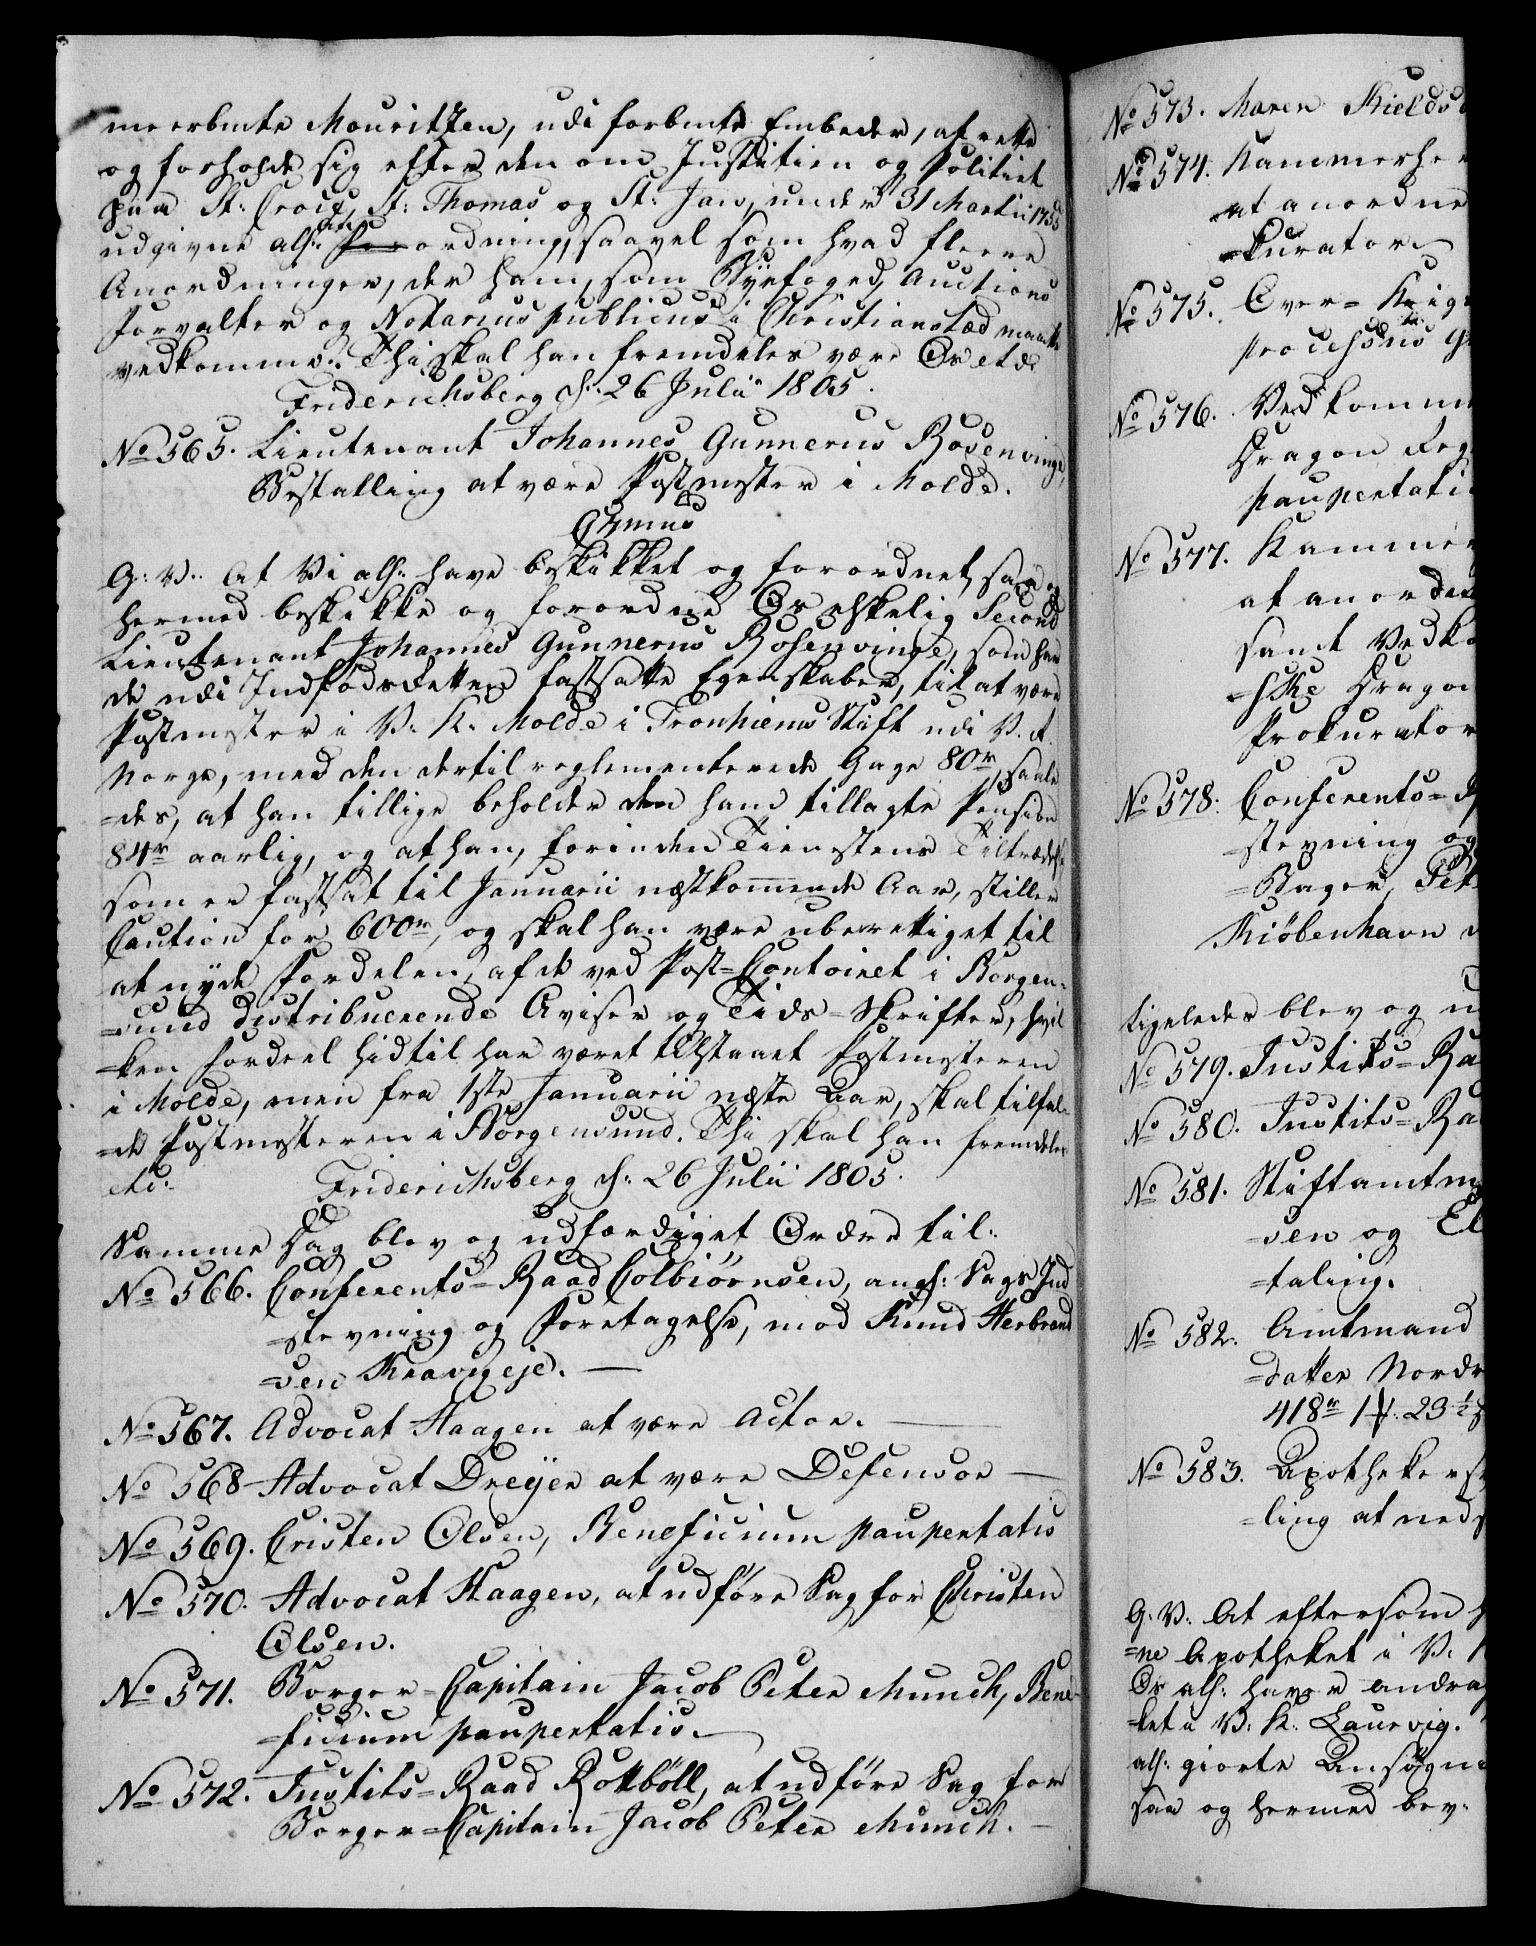 meerbemte Mouritzen, udi forbemte Embeder, at rette
og forholde sig efter den om Justitien og Politiet
paa St: Croix, St: Thomas og St: Jan, under 31 Martii 1755
udgivne alh: Anordning, saavel som hvad fleere
Anordninger, der ham, som Byefoged, Auctions
Forvalter og Notarius publicus i Christianstæd maatte
vedkomme. Thi skal han fremdeles være Os etc:
Friderichsberg d: 26 Julii 1805.
No 565. Lieutenant Johannes Gunnerus Rosenvinge,
Bestalling at være Postmester i Molde.
G: V: At Vi alh: have beskikket og forordnet, saa og
hermed beskikke og forordne Os elskelig Second
Lieutenant Johannes Gunnerus Rosenvinge, som har
de udi Indfødsretten fastsatte Egenskaber, til at være
Postmester i V: K: Molde i Tronhiems Stift udi V. R.
Norge, med den dertil reglementerede Gage 80r, saale
=des, at han tillige beholder den ham tillagte Pension
84r aarlig, og at han, forinden Tienstens Tiltrædelse
som er fastsat til Januarii næstkommende Aar, stiller
Caution for 600r, og skal han være uberettiget til
at nyde Fordelen, af de ved Post=Contoiret i Borgen=
=sund distribuerende Aviser og Tids=Skrifter, hvil
=ken Fordeel hidtil har været tilstaaet Postmesteren
i Molde, men fra 1ste Januarii næste Aar, skal tilfal=
=de Postmesteren i Borgensund. Thi skal han fremdeles
etc: Friderichsberg d: 26 Julii 1805.
Samme Dag blev og udfærdiget Ordre til:
No 566. Conferents=Raad Colbiørnsen, angl: Sags Ind
=stevning og Foretagelse, mod Knud Herbrand
=sen Kravigeje. —
No 567. Advocat Haagen at være Actor. —
No 568 Advocat Dreÿer at være Defensor —
No 569. Cristen Olsen, Beneficium paupertatis
No 570. Advocat Haagen, at udføre Sag for Christen
Olsen.
No 571. Borger=Capitain Jacob Peter Munch, Bene=
=ficium paupertatis. —
No 572. Justits=Raad Rottböll, at udføre Sag for
Borger=Capitain Jacob Peter Munch. —
No 573. Maren Skields
No 574. Kammerhe
at anordne
=kurator
No 575. Over=Krigs
processus
No 576. Vedkomm
Dragon Reg
paupertati
No 577. Kammer
at anordne
samt Vedko
=ske Dragon
Prokurator
No 578. Conferents=R
=stevning og
=Bager, Pet
Kiöbenhavn
Ligeledes blev og u
No 579. Justits=Ra
No 580. Justits=Ra
No 581. Stiftamtm
=sen og El
=taling.
No 582. Amtmand
=datter Nordr
418r 1 ₰: 23½ s
No 583. Apotheker
=ling at neds
G: V: At eftersom
=ne Apotheket i V: K
Os alh: haver andrag
=ket i V: K: Laurvig.
alh: giorte Ansøgni
saa og hermed bev: